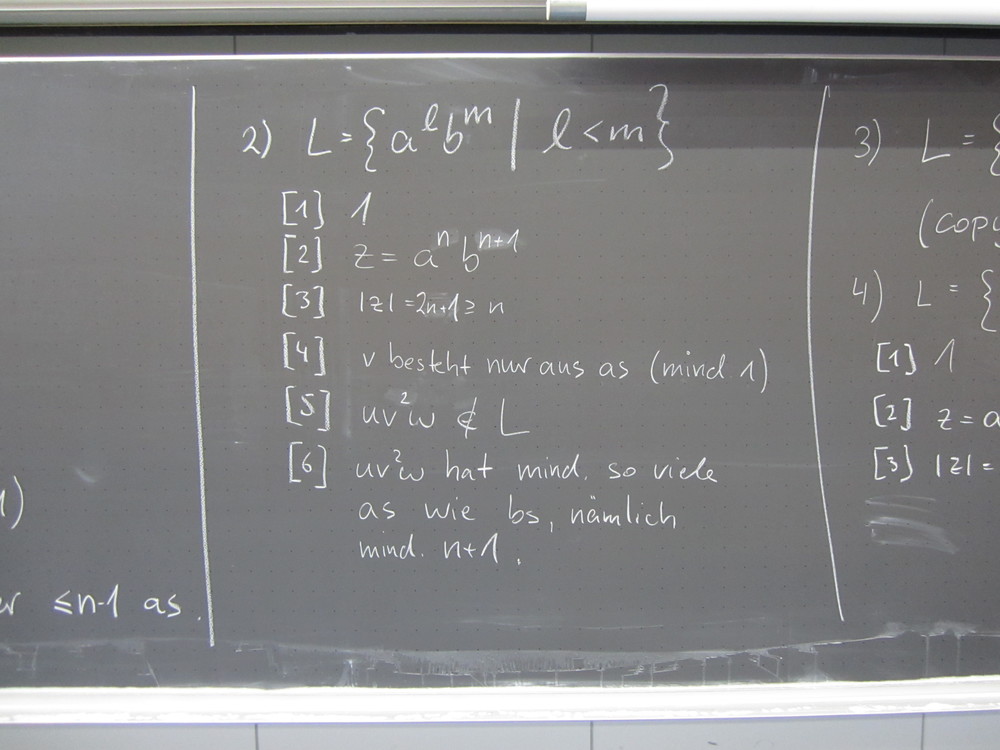 1)
er ≤n-1 as.
2) L={a^l b^m | l<m}
[1] 1
[2] z= a^n b^{n+1}
[3] |z|=2n+1≥ n
[4] v besteht nur aus as (mind. 1)
[5] uv²w ∉ L
[6] uv²w hat mind. so viele
as wie bs, nämlich
mind. n+1.
3) L = {
(copy
4) L = {
[1] 1
[2] z = a
[3] |z| =